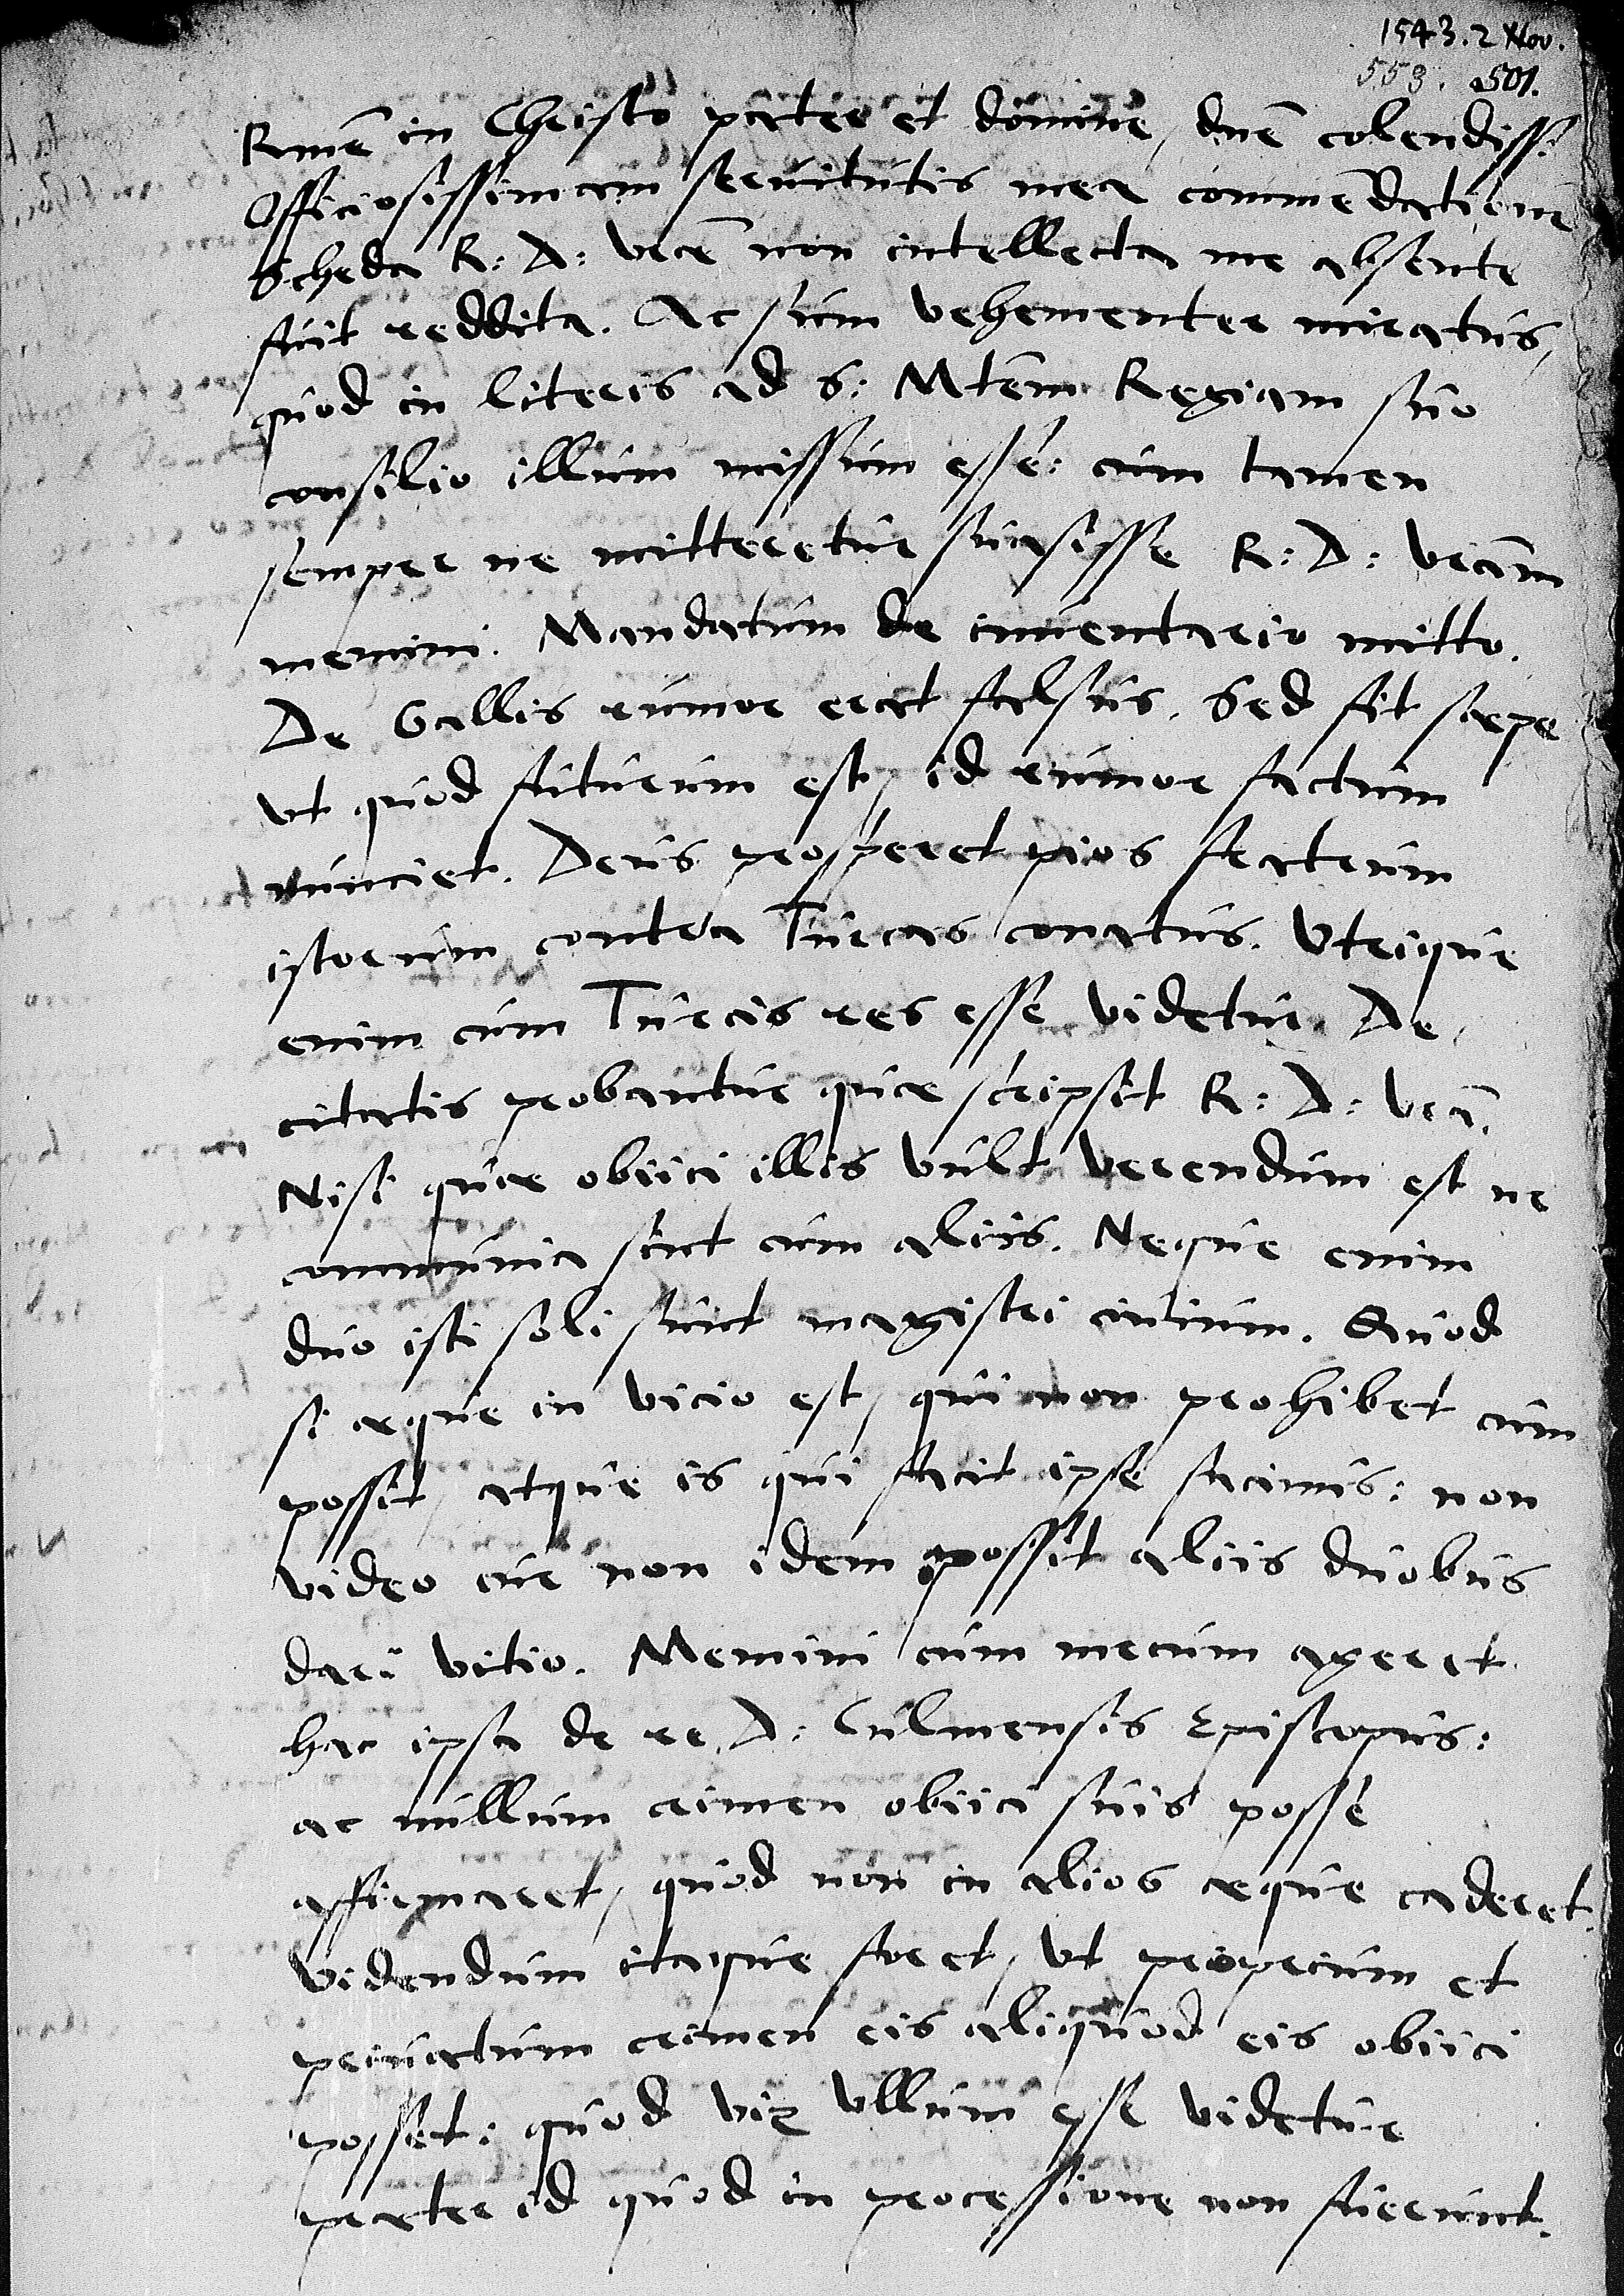 1543. 2 Nov.
553. 501.
Rme in Christo pater et domine, dne colendiss.
Officiosissimam seruitutis meae commendationem
Scheda R: D: vrae non intellecta me absente
fuit reddita. Ac sum vehementer miratus,
quod in literis ad S: Mtem Regiam suo
consilio illum missum esse: cum tamen
semper ne mitteretur suasisse R: D: vram
memini. Mandatum de inuentario mitto.
De Gallis rumor erat falsus. Sed fit saepe
vt quod futurum est, id rumor factum
nunciet. Deus prosperet pios fratrum
istorum contra Turcas conatus. Vtrique
enim cum Turcis res esse videtur. De
citatis probantur quae scripsit R: D: vra.
Nisi quae obiici illis vult verendum est ne
communia sint cum aliis. Neque enim
duo isti soli sunt magistri ciuium. Quod
si aeque in vicio est, qui non prohibet cum
possit, atque is qui facit ipse facinus: non
video cur non idem possit aliis duobus
dari vitio. Memini cum mecum ageret
hac ipsa de re D: Culmensis Episcopus:
ac nullum crimen obiici suis posse
affirmaret, quod non in alios aeque caderet.
Videndum itaque foret, vt proprium et
priuatum crimen eis aliquod eis obiici
posset: quod vix vllum esse videtur
praeter id quod in processione non fuerunt.